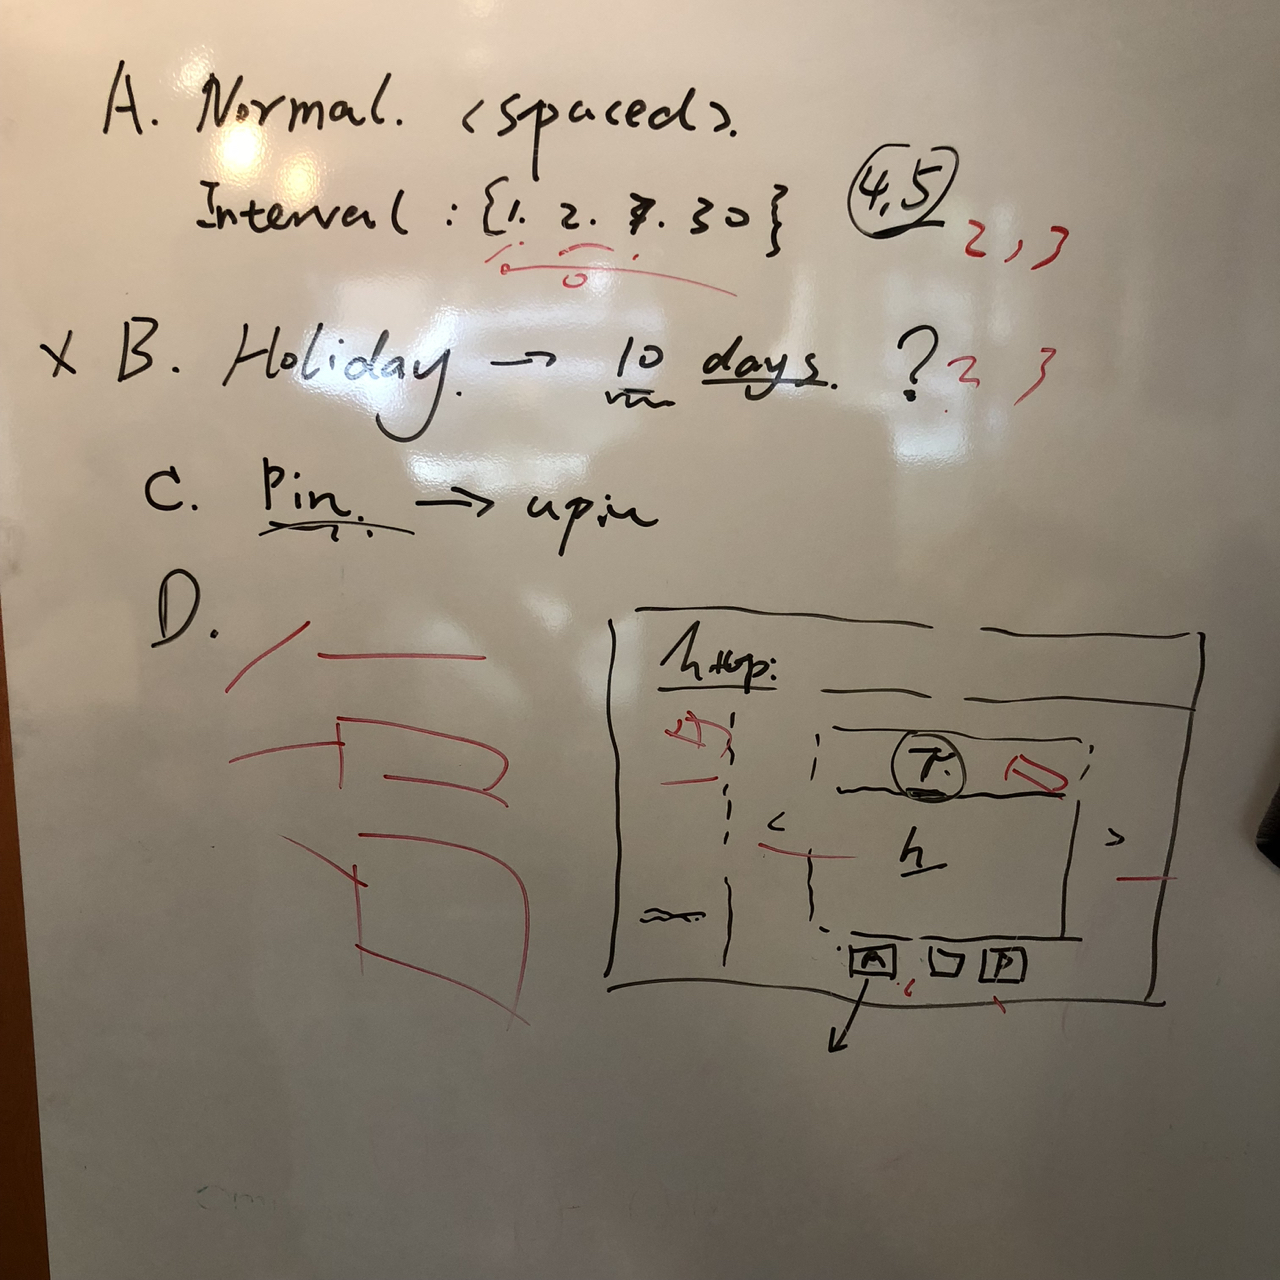 A. Normal. (spaced).
Interval : {1. 2. 7. 30} 4,5 2, 3
x B. Holiday. → 10 days. ? 2 3
C. Pin. ⇒ upin
D.
http:
T.
<
h
>
A
P